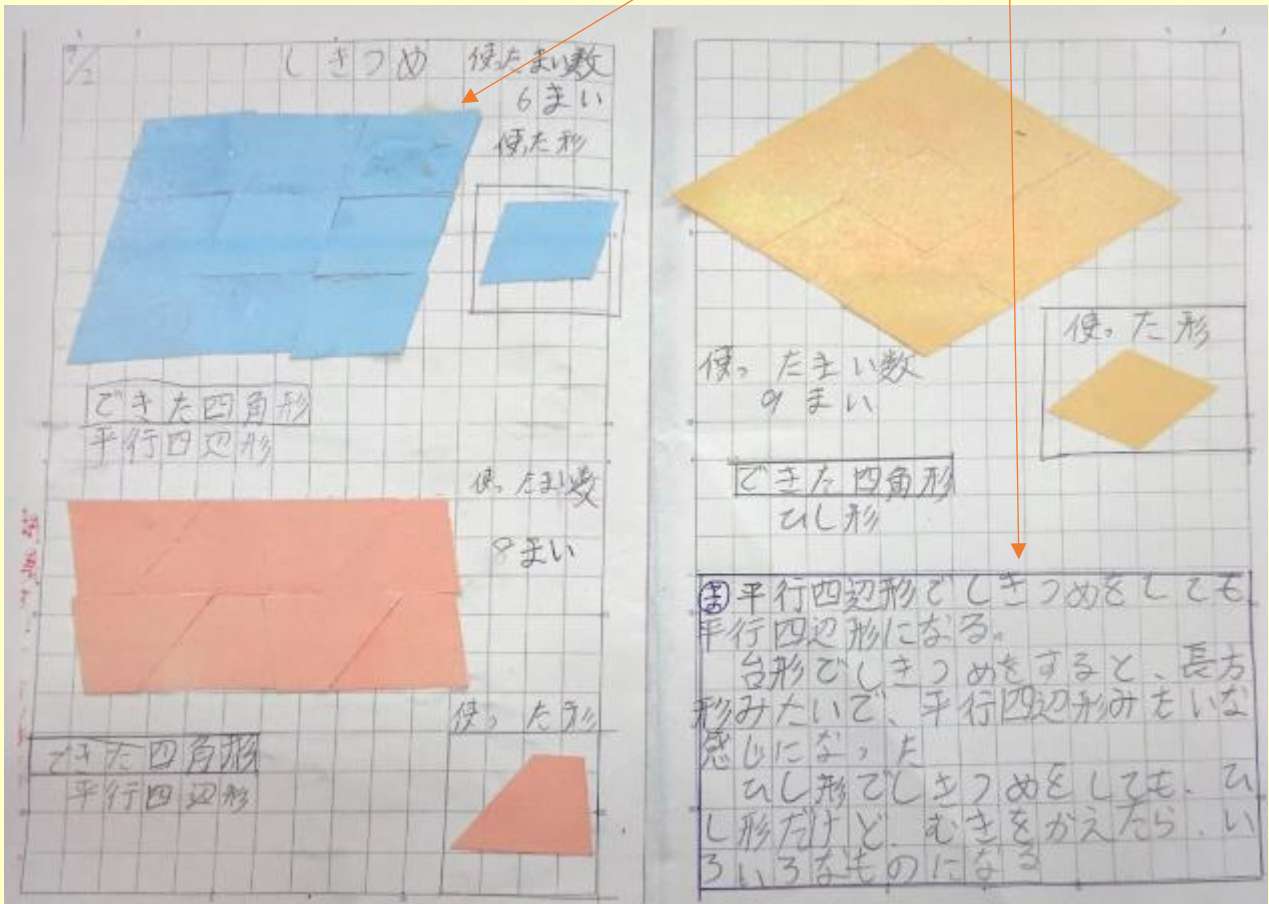 7/2
しきつめ
使ったまい数
6まい
使った形
できた四角形
平行四辺形
使ったまい数
8まい
使った形
できた四角形
平行四辺形
使ったまい数
9まい
使った形
できた四角形
ひし形
ま 平行四辺形でしきつめをしても
平行四辺形になる。
台形でしきつめをすると、長方
形みたいで、平行四辺形みもいな
感じになった
ひし形でしきつめをしても、ひ
し形だけど、むきをかえたら、い
ろいろなものになる